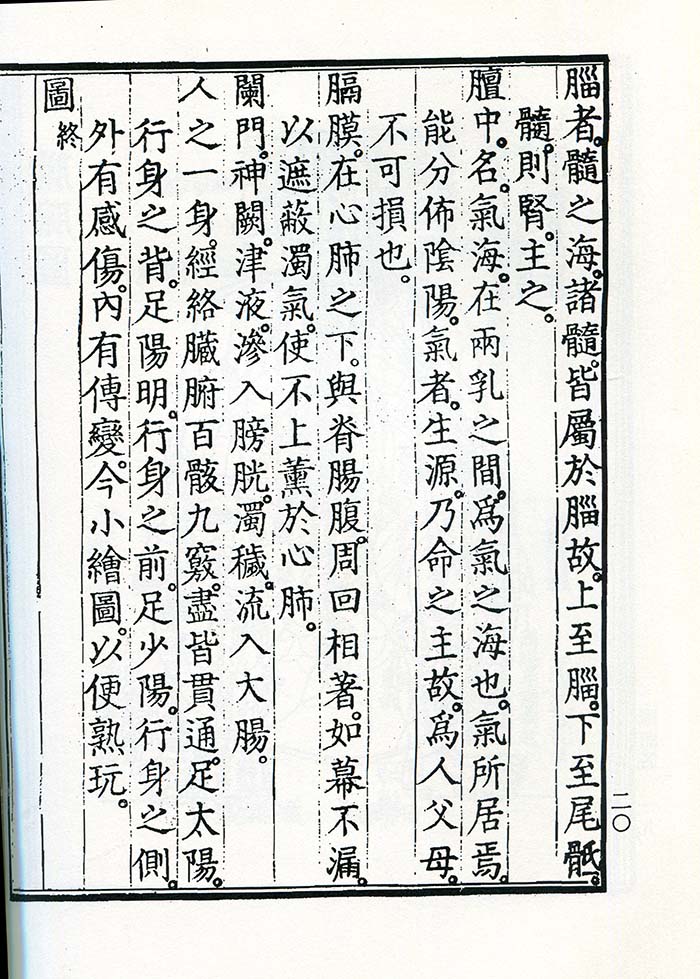 腦者。髓之海。諸髓。皆屬於腦故。上至腦。下至尾骶。
髓。則腎。主之。
膻中。名。氣海。在兩乳之間。為氣之海也。氣所居焉。
能分佈陰陽。氣者。生源。乃命之主故。為人父母。
不可損也。
膈膜。在心肺之下。與脊腸腹。周回相著。如幕不漏。
以遮蔽濁氣。使不上薰於心肺。
闌門。神闕。津液。滲入膀胱。濁穢。流入大腸。
人之一身。經絡臟腑百骸九竅。盡皆貫通。足太陽。
行身之背。足陽明。行身之前。足少陽。行身之側。
外有感傷。內有傳變。今小繪圖。以便熟玩。
圖終
二〇